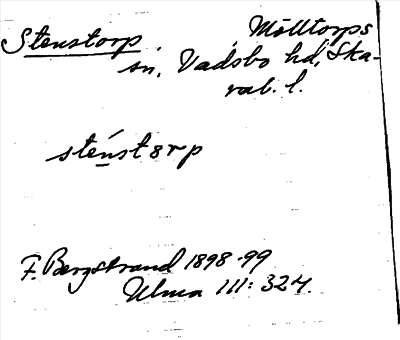 Stenstorp Mölltorps
sn, Vadsbo hd, Ska-
rab. l.
sténstorp
F. Bergstrand 1898-99
Ulma 111:324.